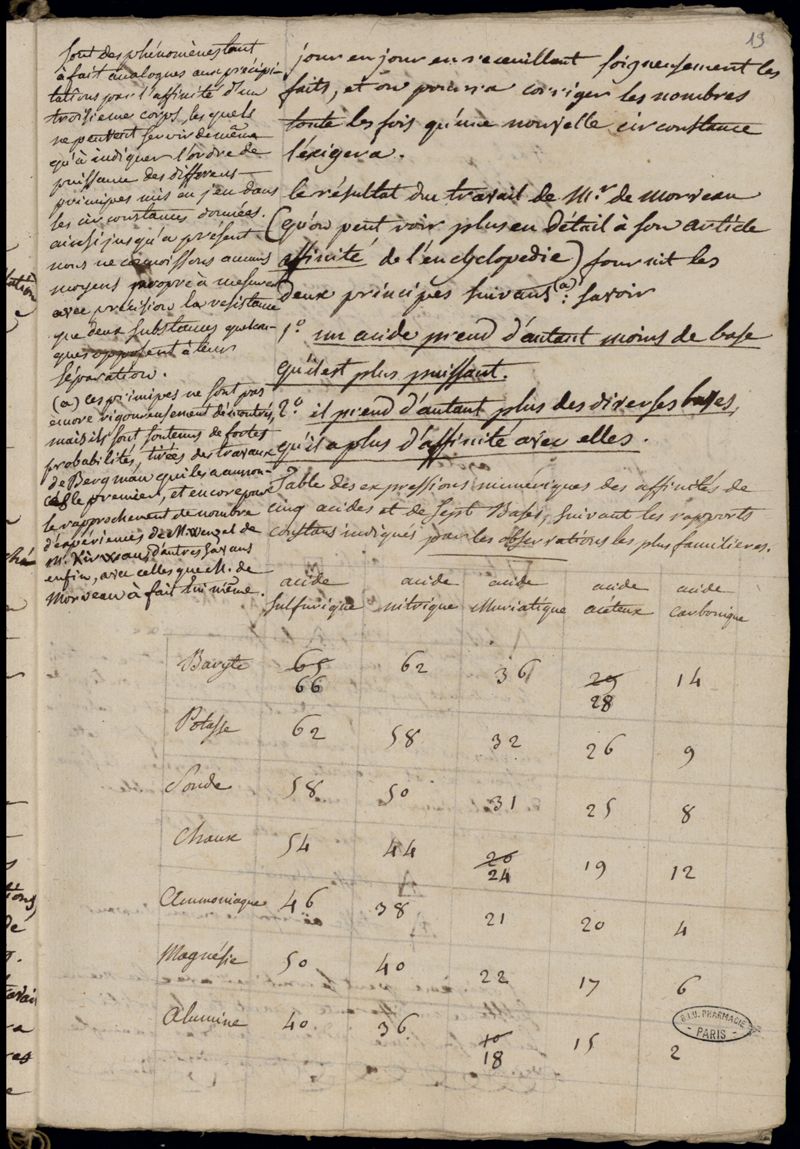 13
sont des phénomènes tout
à fait analogues aux précipi-
tations par l'affinité d'un
troisieme corps, les quels
ne peuvent servir de même
qu'à indiquer l'ordre de
puissance des differens
principes mis en jeu dans
les circonstances données.
ainsi jusqu'a présent
nous ne connoissons aucuns
moyens propre à mesurer
avec précision la resistance
que deux substances quelcon-
ques opposent à leur
séparation.
(a) ces principes ne sont pas
encore rigoureusement démontrés,
mais ils sont soutenus de fortes
probabilités, tirées des travaux
de Bergman qui les a annon-
cés le premier, et encore par
le rapprochement de nombre
d'expériences de M. Wenzel de
Mr. Kirwan d'autres savans
enfin, avec celles que M. de
Morveau à fait lui même.
jour en jour en receuillant soigneusement les
faits, et on pourra corriger les nombres
toute les fois qu'une nouvelle circonstance
l'exigera.
le résultat du travail de Mr. de Morveau
(qu'on peut voir plus en détail à son article
affinité de l'encyclopedie) fournit les
deux principes suivans (a): savoir
1.o un acide prend d'autant moins de base
qu'il est plus puissant.
2.o il prend d'autant plus des diverses bases,
qu'il a plus d'affinité avec elles.
Table des expressions numériques des affinités de
cinq acides et de sept Bases, suivant les rapports
constans indiqués par les observations les plus familieres.
acide sulfurique acide nitrique acide Muriatique acide acéteux acide carbonique
Baryte 65 66 62 36 29 28 14
Potasse 62 58 32 26 9
Soude 58 50 31 25 8
Chaux 54 44 20 24 19 12
Ammoniaque 46 38 21 20 4
Magnésie 50 40 22 17 6
Alumine 40 36 10 18 15 2
B.I.U. PHARMACIE
- PARIS -